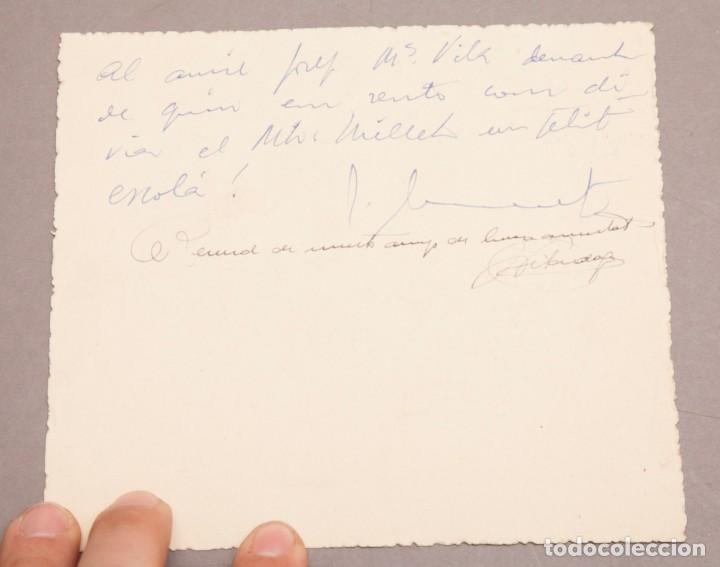 Al amic Josep Mª Vila devant
de quin em sento com di-
via el Mtre Millet un petit
escolà!
J.
Record de molts anys de bona amistat
todocoleccion.net